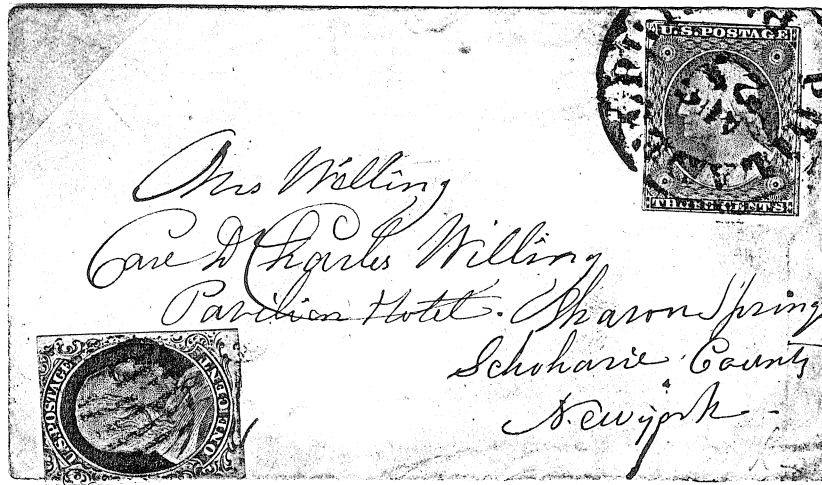 U.S. POSTAGE
THREE CENTS
Mrs Welling
Care Dr Charles Willing
Pavilion Hotel. Sharon Spring
Schoharie County
New york
U.S. POSTAGE
ONE CENT